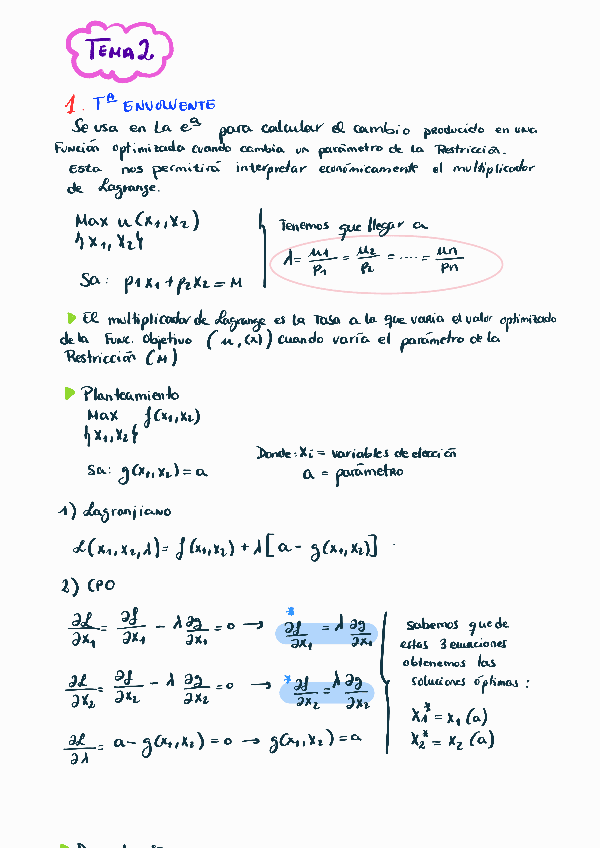 TEMA 2
1. Tª ENVOLVENTE
Se usa en la eª para calcular el cambio producido en una
función optimizada cuando cambia un parámetro de la Restricción.
Esta nos permitirá interpretar económicamente el multiplicador
de Lagrange.
Max u(x₁,x₂)
{x₁,x₂}
Sa: p₁x₁+p₂x₂=M
Tenemos que llegar a
λ= u₁/p₁ = u₂/p₂ = ..... = un/pn
El multiplicador de Lagrange es la tasa a la que varía el valor optimizado
de la Func. Objetivo (u,(x)) cuando varía el parámetro de la
Restricción (M)
Planteamiento
Max f(x₁,x₂)
{x₁,x₂}
Sa: g(x₁,x₂)=a
Donde: xi = variables de elección
a = parámetro
1) Lagranjiano
L(x₁,x₂,λ)= f(x₁,x₂) + λ[a - g(x₁,x₂)]
2) CPO
∂L/∂x₁ = ∂f/∂x₁ - λ ∂g/∂x₁ =0 → * ∂f/∂x₁ = λ ∂g/∂x₁
∂L/∂x₂ = ∂f/∂x₂ - λ ∂g/∂x₂ =0 → * ∂f/∂x₂ = λ ∂g/∂x₂
∂L/∂λ = a-g(x₁,x₂)=0 → g(x₁,x₂)=a
Sabemos que de
estas 3 ecuaciones
obtenemos las
soluciones óptimas:
x₁* = x₁(a)
x₂* = x₂(a)